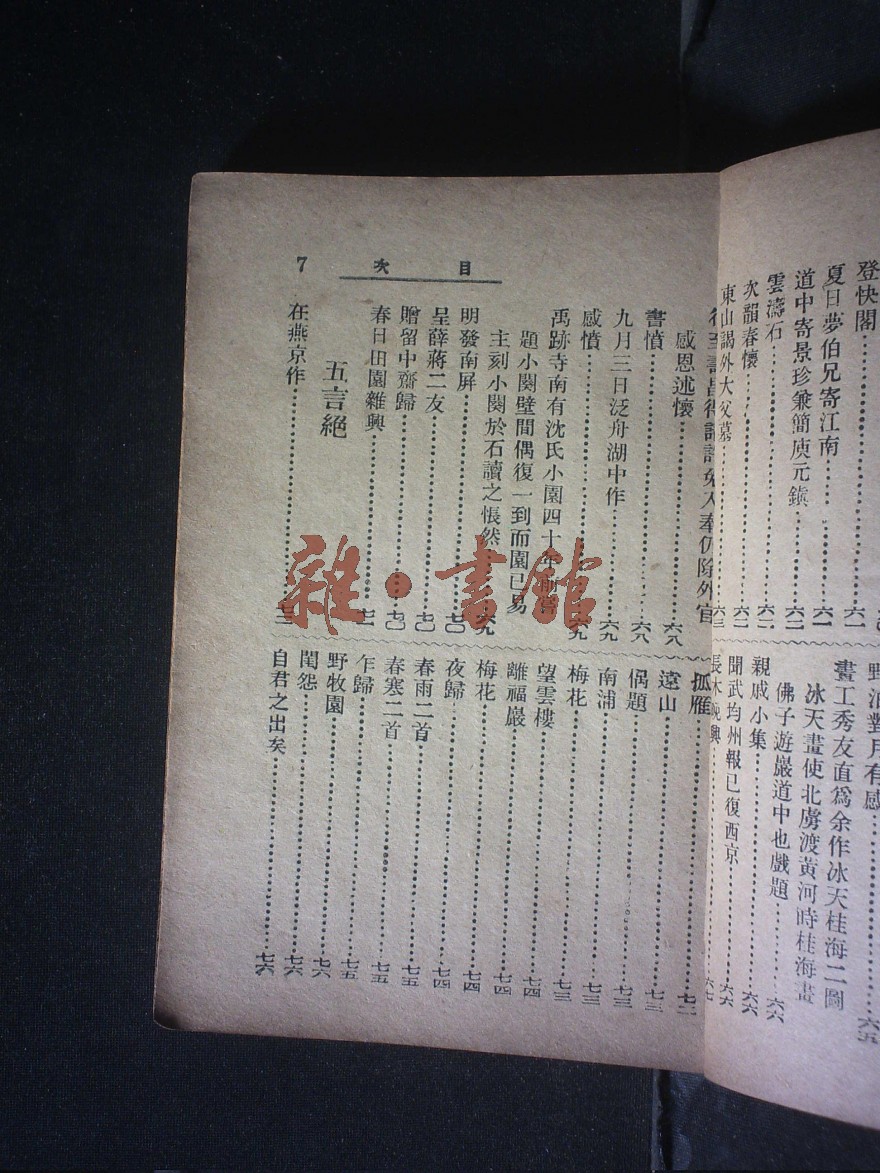 登快閣……六一
夏日夢伯兄寄江南……六一
道中寄景珍兼簡庾元鎮……六二
雲濤石……六二
次韻春懷……六二
東山謁外大父墓……六三
野泊對月有感……六五
畫工秀友直爲余作冰天桂海二圖
冰天畫使北虜渡黃河時桂海畫
佛子遊巖道中也戲題……六六
親戚小集……六六
聞武均州報已復西京……六六
長木晚興……六七
目次
7
感恩述懷……六八
書憤……六八
九月三日泛舟湖中作……六九
感憤……六九
禹跡寺南有沈氏小園四十年前嘗
題小闋壁間偶復一到而園已易
主刻小闋於石讀之悵然……六九
明發南屏……七〇
呈薛蔣二友……七〇
贈留中齋歸……七〇
春日田園雜興……七一
五言絕
在燕京作……七二
孤雁……七二
遠山……七三
偶題……七三
南浦……七三
梅花……七三
望雲樓……七四
離福巖……七四
梅花……七四
夜歸……七四
春雨二首……七五
春寒二首……七五
乍歸……七五
野牧園……七六
閨怨……七六
自君之出矣……七六
雜·書館